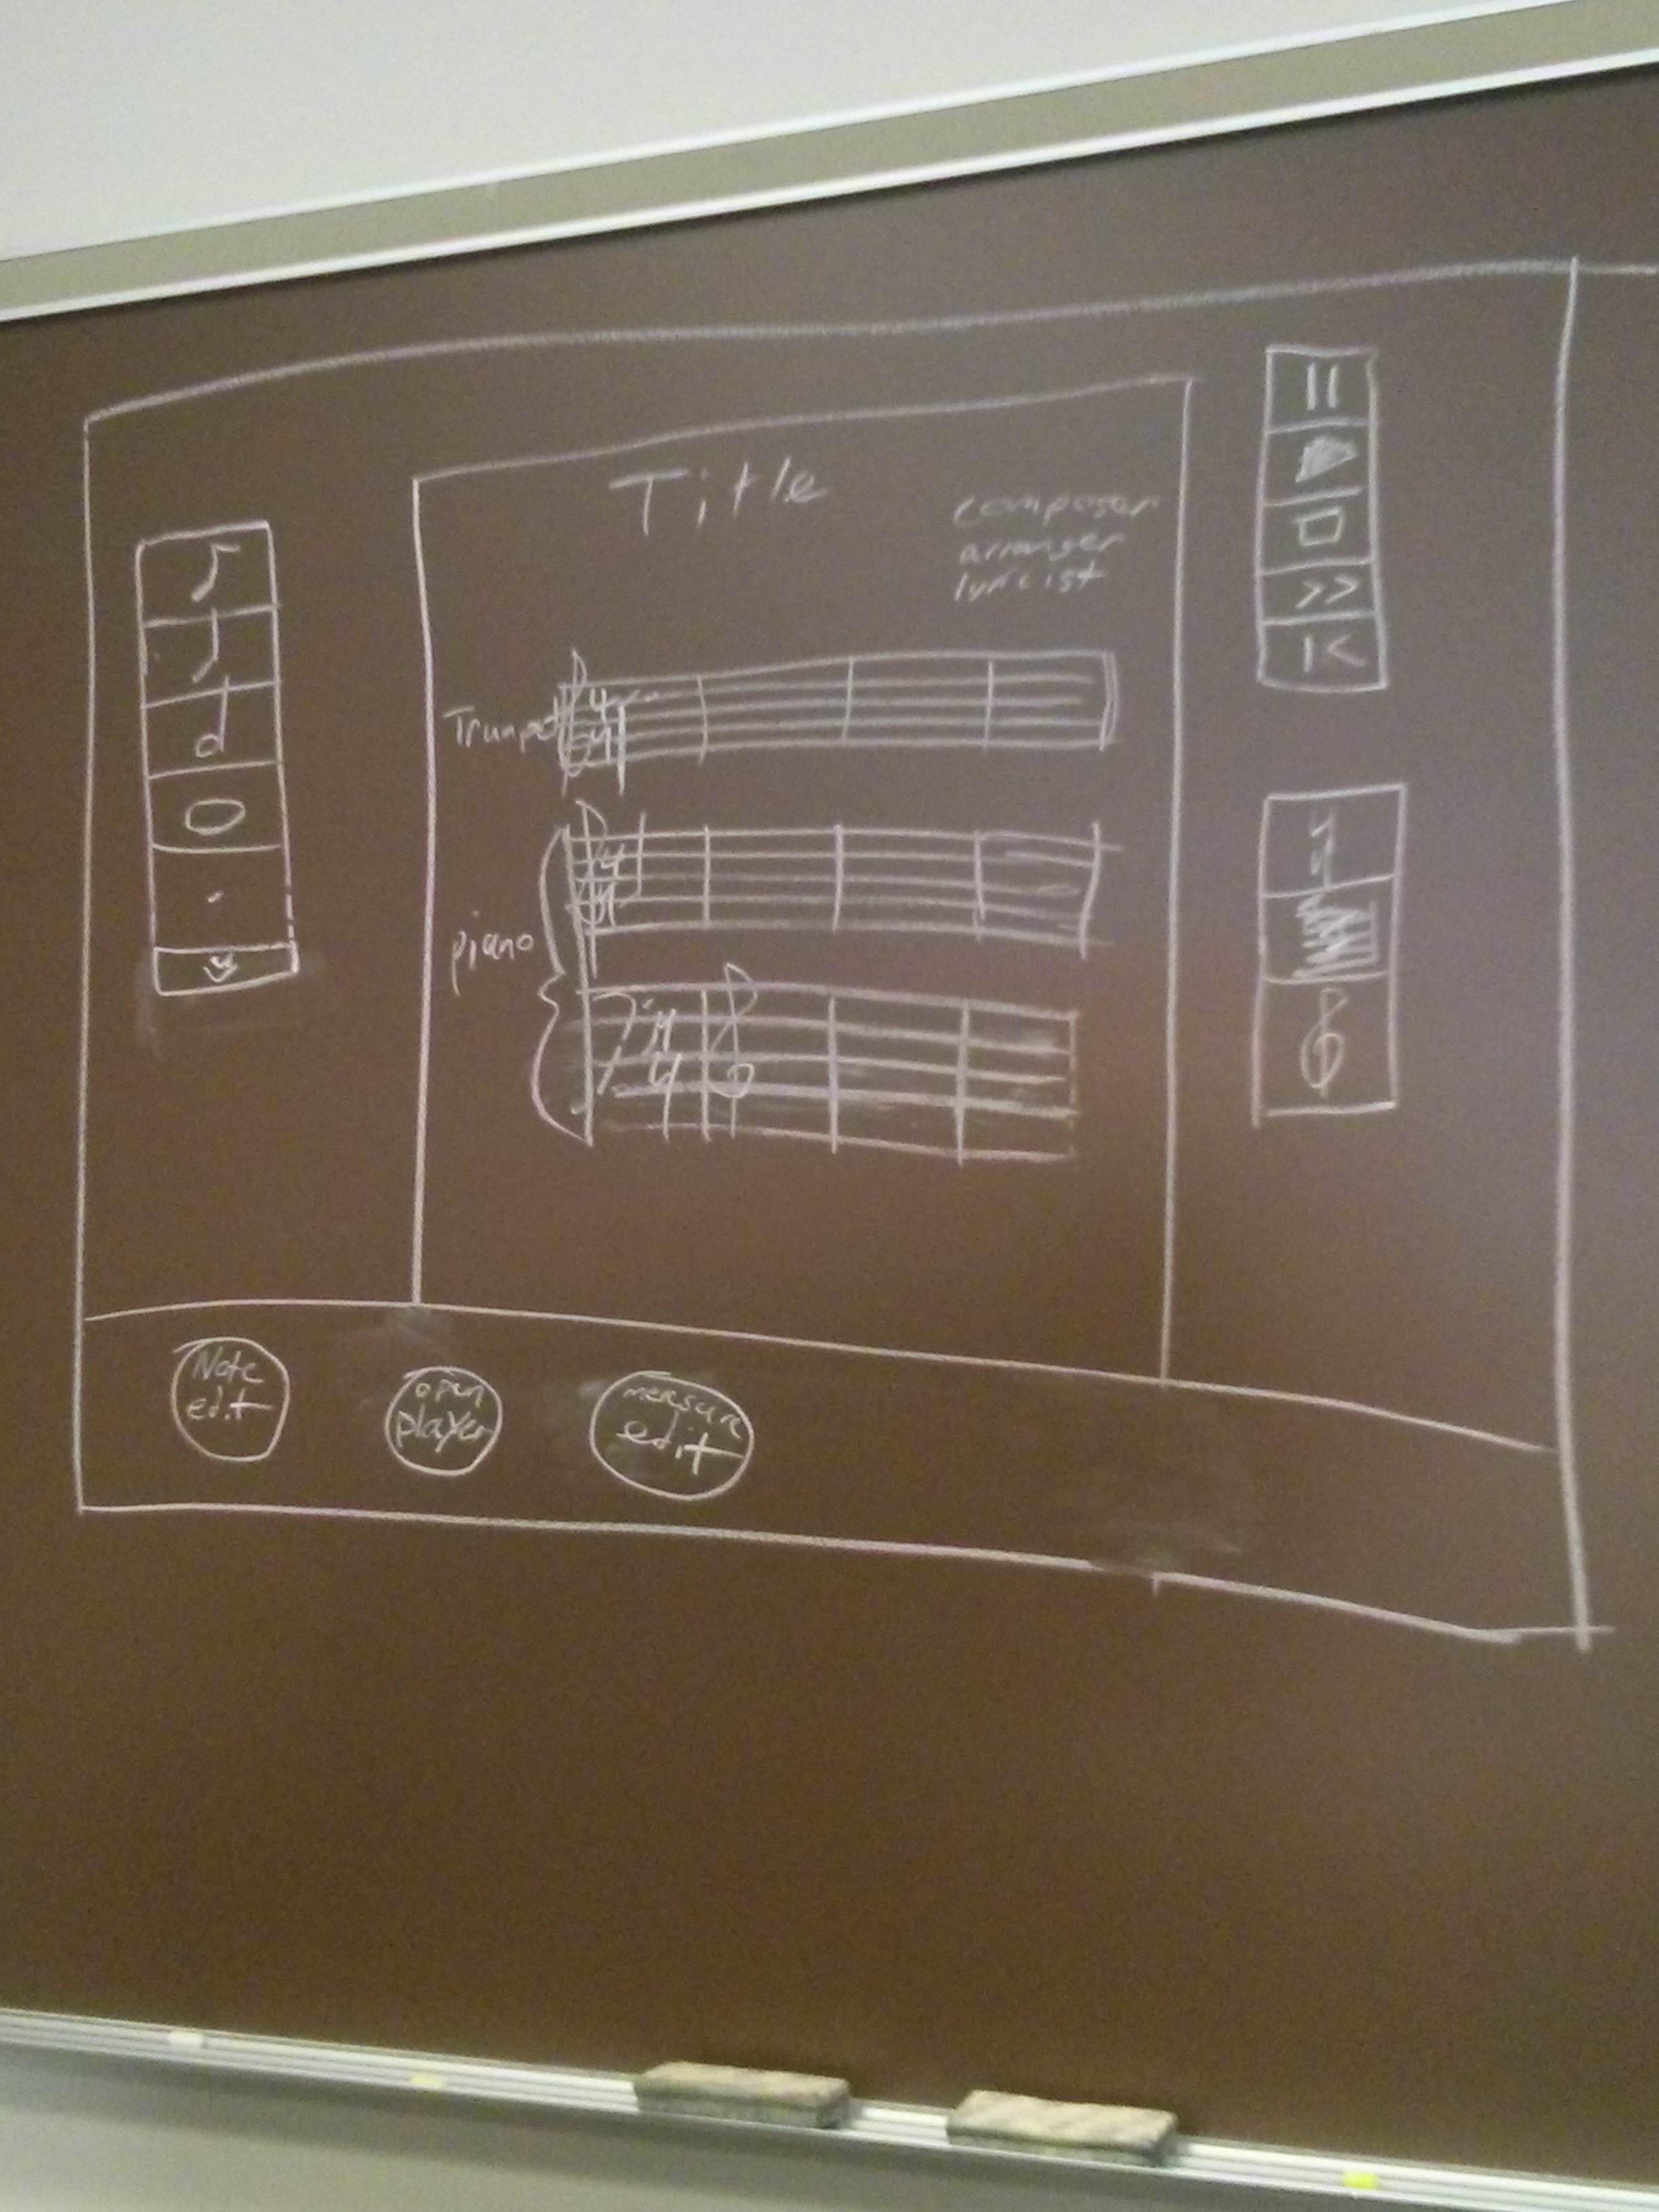 Title
composer
arranger
lyricist
Trumpet
4
4
piano
4
4
4
4
4
4
Note
edit
open
player
measure
edit